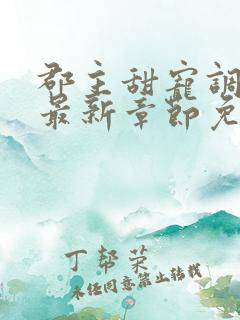 郡主甜寵調
最新章節免
丁幇荣
未经同意禁止转载